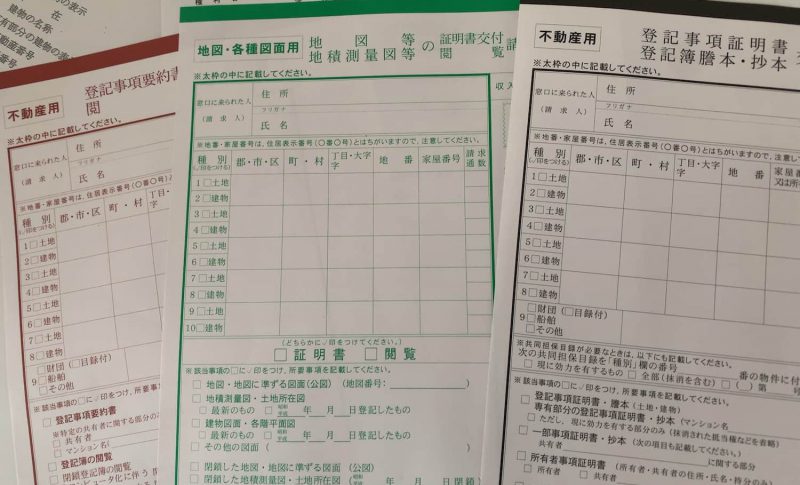 の表示
建物の名称
在
有部分の建物の表
動産番号
不動産用
登記事項要約書
閲
※太枠の中に記載してください。
窓口に来られた人
(請求人)
住所
フリガナ
氏名
※地番・家屋番号は、住居表示番号(〇番〇号)
種別
(✓印をつける)
郡・市・区
町・村
丁目・大字
字
1□土地
2□建物
3□土地
4□建物
5□土地
6□建物
7□土地
8□建物
9
□財団(□目録付)
□船舶
□その他
※該当事項の□に✓印をつけ、所要事項を記載し
□登記事項要約書
※特定の共有者に関する部分のみ
共有者
□マンション名(
□登記簿の閲覧
□閉鎖登記簿の閲覧
コンピュータ化に伴う
地図・各種図面用
地図等
地積測量図等
の
証明書交付
閲覧
請
※太枠の中に記載してください。
窓口に来られた人
(請求人)
住所
フリガナ
氏名
収入
※地番・家屋番号は、住居表示番号(〇番〇号)とはちがいますので、注意してください。
種別
(✓印をつける)
郡・市・区
町・村
丁目・大字
字
地番
家屋番号
請求
通数
1□土地
2□建物
3□土地
4□建物
5□土地
6□建物
7□土地
8□建物
9□土地
10□建物
(どちらかに✓印をつけてください。)
□証明書 □閲覧
※該当事項の□に✓印をつけ、所要事項を記載してください。
□地図・地図に準ずる図面(公図)(地図番号:
□地積測量図・土地所在図
□最新のもの □昭和平成 年 月 日登記したもの
□建物図面・各階平面図
□最新のもの □昭和平成 年 月 日登記したもの
□その他の図面(
□閉鎖した地図・地図に準ずる図面(公図)
□閉鎖した地積測量図・土地所在図
不動産用
登記事項証明書
登記簿謄本・抄本
※太枠の中に記載してください。
窓口に来られた人
(請求人)
住所
フリガナ
氏名
※地番・家屋番号は、住居表示番号(〇番〇号)とはちがいますので、注意して
種別
(✓印をつける)
郡・市・区
町・村
丁目・大字
字
地番
家屋番
又は所
1□土地
2□建物
3□土地
4□建物
5□土地
6□建物
7□土地
8□建物
9
□財団(□目録付)
□船舶
□その他
※共同担保目録が必要なときは、以下にも記載してください。
次の共同担保目録を「種別」欄の番号 番の物件に付
□現に効力を有するもの □全部(抹消を含む) □( )第 号
※該当事項の□に✓印をつけ、所要事項を記載してください。
□登記事項証明書・謄本(土地・建物)
専有部分の登記事項証明書・抄本(マンション名
□ただし、現に効力を有する部分のみ(抹消された抵当権などを省略)
□一部事項証明書・抄本(次の項目も記載してください。)
共有者 に関する部分
□所有者事項証明書(所有者・共有者の住所・氏名・持分のみ)
□所有者 □共有者